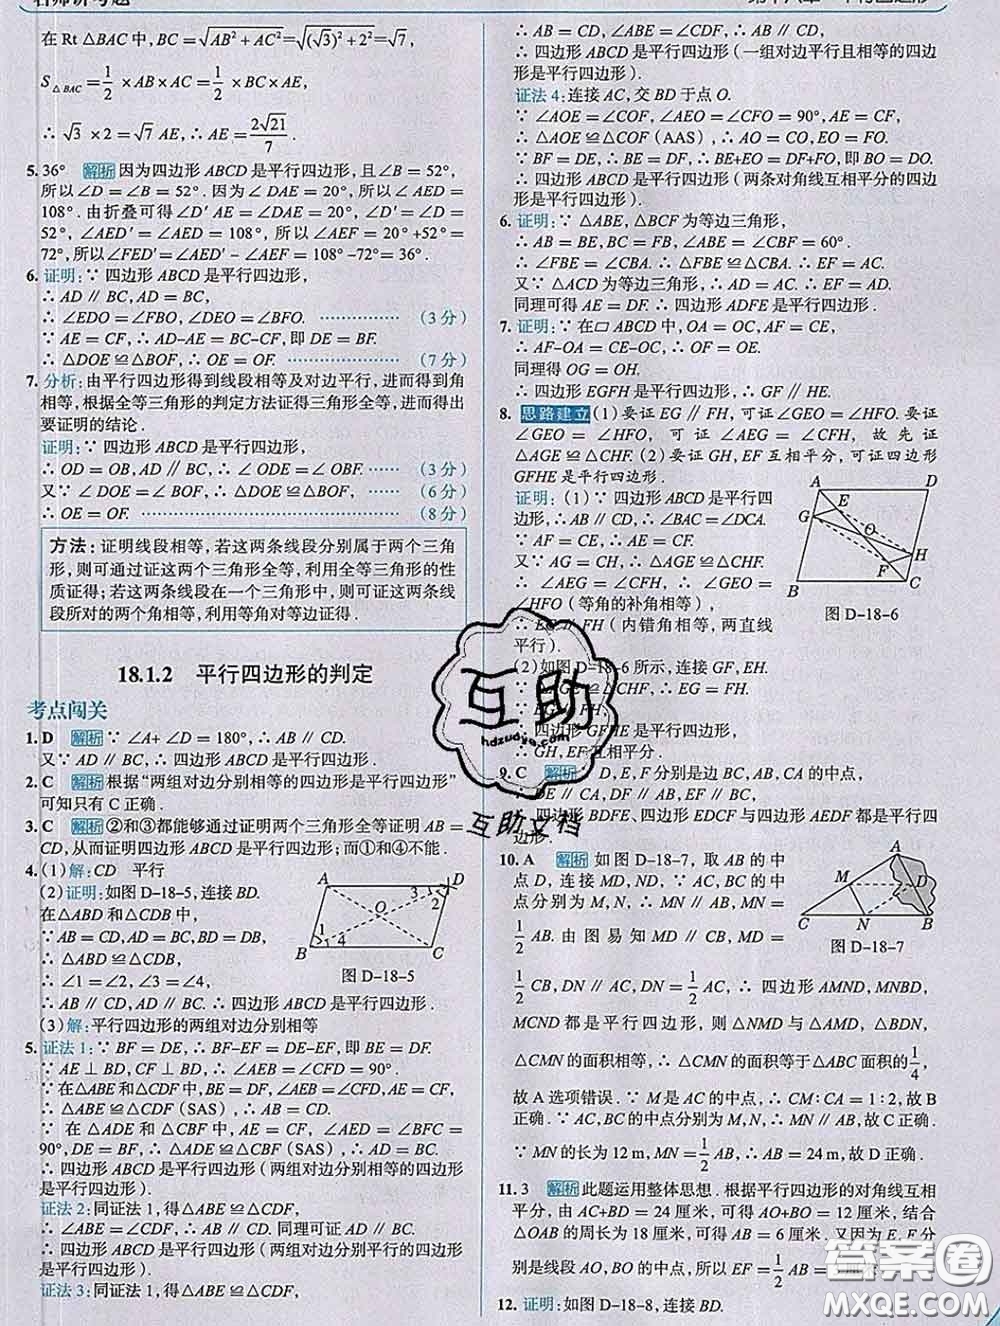 在 Rt △BAC 中, BC = √(AB² + AC²) = √((√3)² + 2²) = √7,
S△BAC = 1/2 × AB × AC = 1/2 × BC × AE,
∴ √3 × 2 = √7 AE, ∴ AE = 2√21/7.
5. 36° 解析 因为四边形 ABCD 是平行四边形,且∠B = 52°,
所以∠D = ∠B = 52°. 因为∠DAE = 20°,所以∠AED =
108°. 由折叠可得∠D′AE = ∠DAE = 20°, ∠D′ = ∠D =
52°, ∠AED′ = ∠AED = 108°, 所以∠AEF = 20° + 52° =
72°,所以∠FED′ = ∠AED′ - ∠AEF = 108° - 72° = 36°.
6. 证明:∵ 四边形 ABCD 是平行四边形,
∴ AD ∥ BC, AD = BC,
∴ ∠EDO = ∠FBO, ∠DEO = ∠BFO. ……………… (3 分)
∵ AE = CF, ∴ AD-AE = BC-CF, 即 DE = BF.
∴ △DOE ≌ △BOF, ∴ OE = OF. ……………… (7 分)
7. 分析:由平行四边形得到线段相等及对边平行,进而得到角
相等,根据全等三角形的判定方法证得三角形全等,进而得出
要证明的结论.
证明:∵ 四边形 ABCD 是平行四边形,
∴ OD = OB, AD ∥ BC, ∴ ∠ODE = ∠OBF. …… (3 分)
又∵ ∠DOE = ∠BOF, ∴ △DOE ≌ △BOF, …… (6 分)
∴ OE = OF. ……………… (8 分)
方法:证明线段相等,若这两条线段分别属于两个三角
形,则可通过证这两个三角形全等,利用全等三角形的性
质证得;若这两条线段在一个三角形中,则可证这两条线
段所对的两个角相等,利用等角对等边证得.
18.1.2 平行四边形的判定
考点闯关
1. D 解析 ∵ ∠A + ∠D = 180°, ∴ AB ∥ CD.
又∵ AD ∥ BC, ∴ 四边形 ABCD 是平行四边形.
2. C 解析 根据“两组对边分别相等的四边形是平行四边形”
可知只有 C 正确.
3. C 解析 ②和③都能够通过证明两个三角形全等证明 AB =
CD,从而证明四边形是平行四边形;而①和④不能.
4. (1) 解: CD 平行
(2) 证明:如图 D-18-5,连接 BD.
在△ABD 和△CDB 中,
∵ AB = CD, AD = CB, BD = DB,
∴ △ABD ≌ △CDB,
∴ ∠1 = ∠2, ∠3 = ∠4,
∴ AB ∥ CD, AD ∥ BC. ∴ 四边形 ABCD 是平行四边形.
(3) 解:平行四边形的两组对边分别相等
A D B C O 1 2 3 4
图 D-18-5
5. 证法 1:∵ BF = DE, ∴ BF-EF = DE-EF, 即 BE = DF.
∵ AE ⊥ BD, CF ⊥ BD, ∴ ∠AEB = ∠CFD = 90°.
∵ 在△ABE 和△CDF 中, BE = DF, ∠AEB = ∠CFD, AE = CF,
∴ △ABE ≌ △CDF (SAS), ∴ AB = CD.
∵ 在 △ADE 和 △CBF 中, AE = CF, ∠AED = ∠BFC =
90°, DE = BF, ∴ △ADE ≌ △CBF (SAS), ∴ AD = BC.
∴ 四边形 ABCD 是平行四边形(两组对边分别相等的四边形
是平行四边形).
证法 2:同证法 1,得△ABE ≌ △CDF,
∴ ∠ABE = ∠CDF, ∴ AB ∥ CD. 同理可证 AD ∥ BC.
∴ 四边形 ABCD 是平行四边形(两组对边分别平行的四边形
是平行四边形).
证法 3:同证法 1,得△ABE ≌ △CDF,
∴ AB = CD, ∠ABE = ∠CDF, ∴ AB ∥ CD,
∴ 四边形 ABCD 是平行四边形(一组对边平行且相等的四边
形是平行四边形).
证法 4:连接 AC,交 BD 于点 O.
∵ ∠AOE = ∠COF, ∠AEO = ∠CFO = 90°, AE = CF,
∴ △AOE ≌ △COF (AAS), ∴ AO = CO, EO = FO.
∵ BF = DE, ∴ BE = DF, ∴ BE+EO = DF+FO, 即 BO = DO.
∴ 四边形 ABCD 是平行四边形(两条对角线互相平分的四边
形是平行四边形).
6. 证明:∵ △ABE, △BCF 为等边三角形,
∴ AB = BE, BC = FB, ∠ABE = ∠CBF = 60°.
∴ ∠FBE = ∠CBA. ∴ △FBE ≌ △CBA. ∴ EF = AC.
又∵ △ACD 为等边三角形, ∴ AD = AC. ∴ EF = AD.
同理可得 AE = DF. ∴ 四边形 ADFE 是平行四边形.
7. 证明:∵ 在 ▱ABCD 中, OA = OC, AF = CE,
∴ AF-OA = CE-OC, ∴ OF = OE.
同理得 OG = OH.
∴ 四边形 EGFH 是平行四边形, ∴ GF ∥ HE.
8. 思路建立 (1) 要证 EG ∥ FH, 可证∠GEO = ∠HFO. 要证
∠GEO = ∠HFO, 可证∠AEG = ∠CFH, 故先证
△AGE ≌ △CHF. (2) 要证 GH, EF 互相平分, 可证四边形
GFHE 是平行四边形.
证明: (1) ∵ 四边形 ABCD 是平行四
边形, ∴ AB ∥ CD, ∴ ∠BAC = ∠DCA.
∵ AF = CE, ∴ AE = CF.
又∵ AG = CH, ∴ △AGE ≌ △CHF,
∴ ∠AEG = ∠CFH, ∴ ∠GEO =
∠HFO (等角的补角相等),
∴ EG ∥ FH (内错角相等, 两直线
平行).
A D E G O H F B C
图 D-18-6
(2) 如图 D-18-6 所示,连接 GF, EH.
∵ △AGE ≌ △CHF, ∴ EG = FH.
∵ EG ∥ FH,
∴ 四边形 GFHE 是平行四边形,
∴ GH, EF 互相平分.
9. C 解析 ∵ D, E, F 分别是边 BC, AB, CA 的中点,
∴ DE ∥ CA, DF ∥ AB, EF ∥ BC,
∴ 四边形 BDFE、四边形 EDCF 与四边形 AEDF 都是平行四
边形.
10. A 解析 如图 D-18-7, 取 AB 的中
点 D, 连接 MD, ND. ∵ AC, BC 的中
点分别为 M, N, ∴ MN ∥ AB, MN =
1/2 AB. 由图易知 MD ∥ CB, MD =
A M D C N B
图 D-18-7
1/2 CB, DN ∥ AC, DN = 1/2 AC, ∴ 四边形 AMND, MNBD,
MCND 都是平行四边形, 则 △NMD 与 △AMD, △BDN,
△CMN 的面积相等, ∴ △CMN 的面积等于△ABC 面积的 1/4,
故 A 选项错误. ∵ M 是 AC 的中点, ∴ CM:CA = 1:2, 故 B
正确. ∵ AC, BC 的中点分别为 M, N, ∴ MN ∥ AB, 故 C 正确.
∵ MN 的长为 12 m, MN = 1/2 AB, ∴ AB = 24 m, 故 D 正确.
11. 3 解析 此题运用整体思想. 根据平行四边形的对角线互相
平分, 由 AC+BD = 24 厘米, 可得 AO+BO = 12 厘米, 结合
△OAB 的周长为 18 厘米, 可得 AB = 6 厘米, 又因为 E, F 分
别是线段 AO, BO 的中点, 所以 EF = 1/2 AB = 3 厘米.
12. 证明:如图 D-18-8,连接 BD.
互助
hdzuoye.com
互助文档
答案圈
MXQE.COM